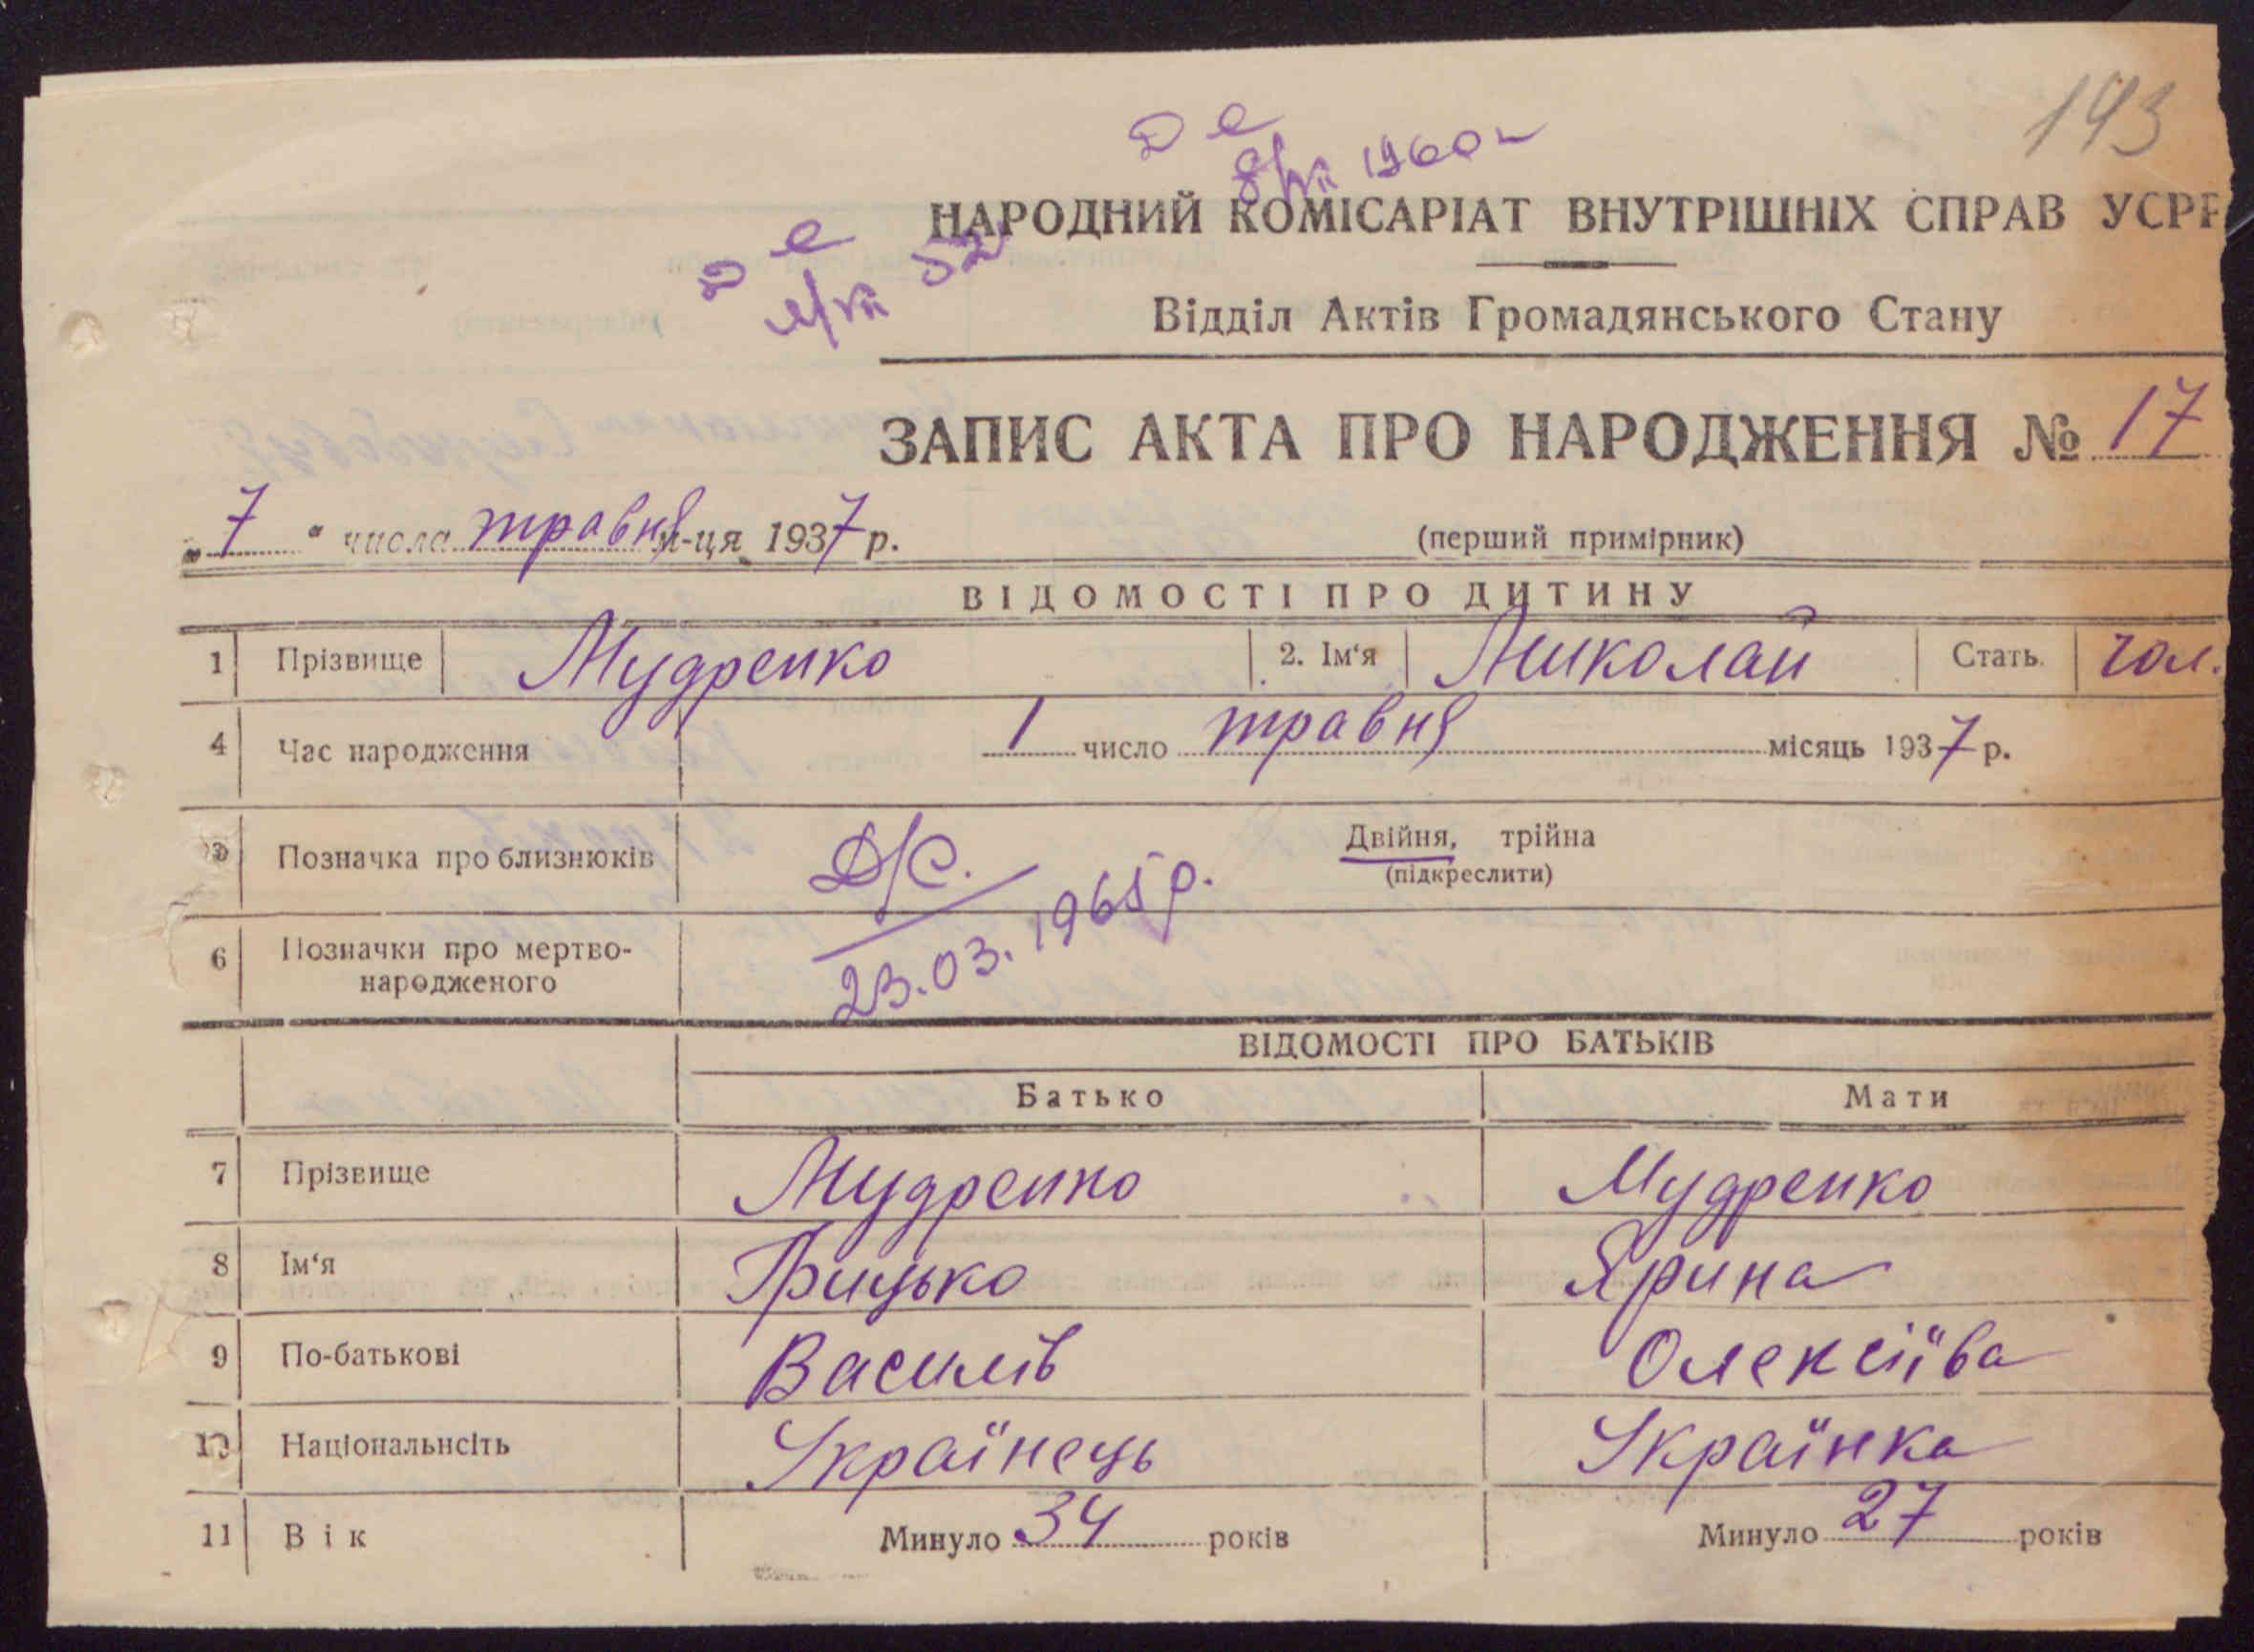 193
Д е
8/VII 1960 г
НАРОДНИЙ КОМІСАРІАТ ВНУТРІШНІХ СПРАВ УСРР
Д е
52
Відділ Актів Громадянського Стану
ЗАПИС АКТА ПРО НАРОДЖЕННЯ № 17
„ 7 “ числа травня м-ця 1937 р.
(перший примірник)
ВІДОМОСТІ ПРО ДИТИНУ
1 Прізвище Мудренко 2. Ім‘я Миколай Стать чол.
4 Час народження 1 число травня місяць 1937 р.
5 Позначка про близнюків Двійня, трійна
(підкреслити)
Д/С.
23.03.1965 р.
6 Позначки про мертво-
народженого
ВІДОМОСТІ ПРО БАТЬКІВ
Батько Мати
7 Прізвище Мудренко Мудренко
8 Ім‘я Грицько Ярина
9 По-батькові Василів Олексіїва
10 Національнсіть Українець Українка
11 Вік Минуло 34 років Минуло 27 років